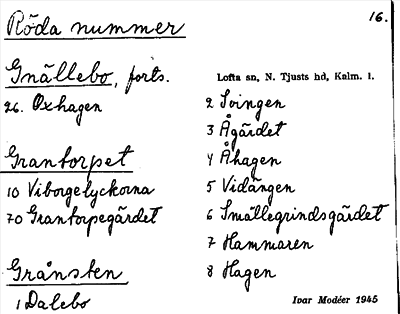 Röda nummer
16.
Gnällebo, forts.
26. Oxhagen
Grantorpet
10 Viborgelyckorna
70 Grantorpegärdet
Gränsten
1 Dalebo
Lofta sn, N. Tjusts hd, Kalm. l.
2 Svingen
3 Ågärdet
4 Åhagen
5 Vidängen
6 Smällegrindsgärdet
7 Hammaren
8 Hagen
Ivar Modéer 1945